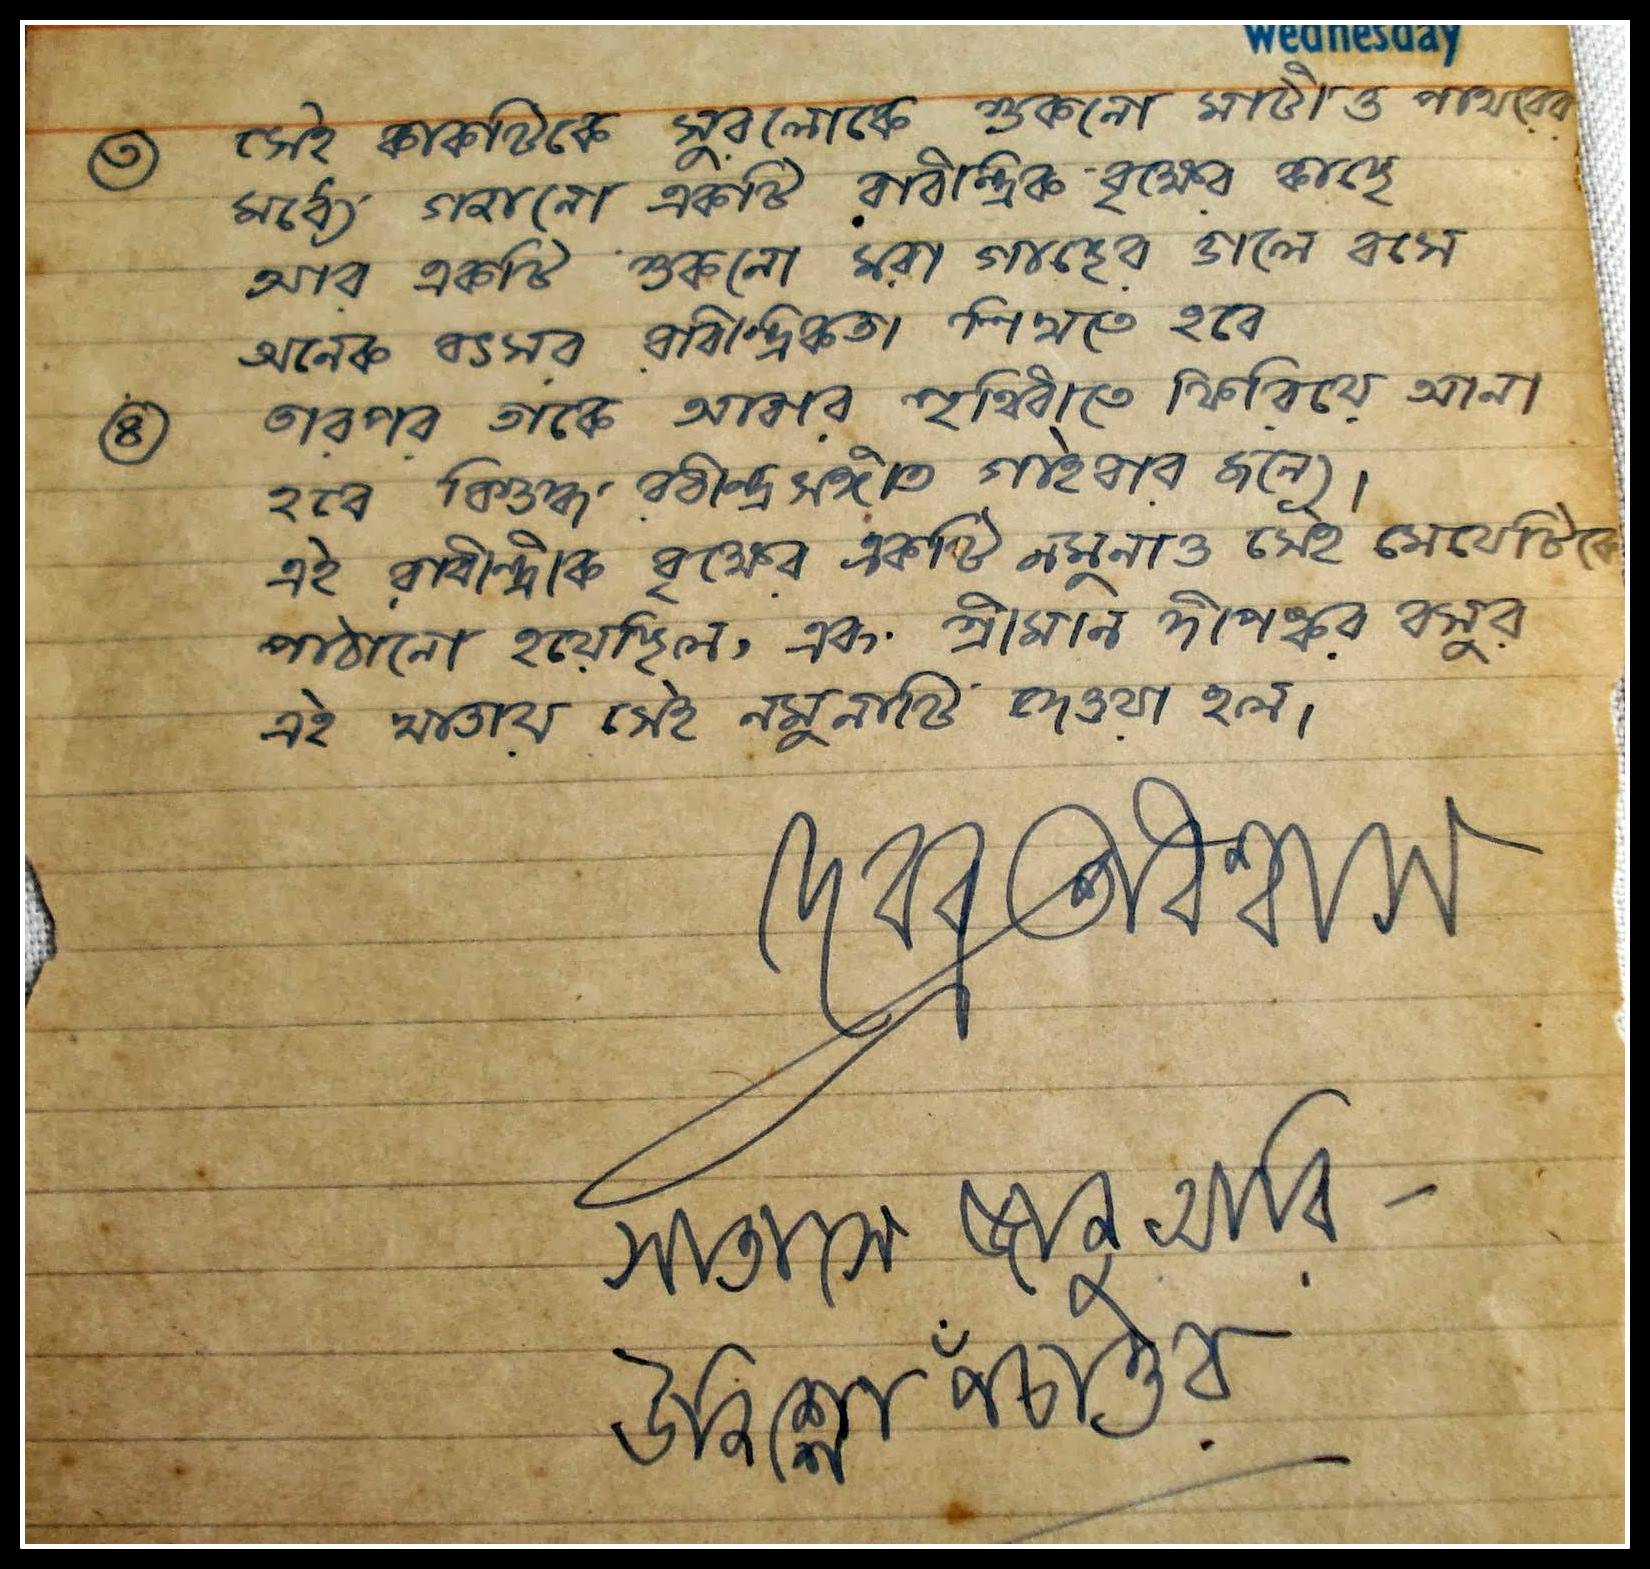 Wednesday
৩ সেই কাকটিকে সুরলোকে শুকনো মাটী ও পাথরের
মধ্যে গজানো একটি রাবীন্দ্রিক বৃক্ষের কাছে
আর একটি শুকনো মরা গাছের ডালে বসে
অনেক বৎসর রবীন্দ্রিকতা শিখতে হবে
৪ তারপর তাকে আবার পৃথিবীতে ফিরিয়ে আনা
হবে বিশুদ্ধ রবীন্দ্রসঙ্গীত গাইবার জন্যে।
এই রাবীন্দ্রীক বৃক্ষের একটি নমুনাও সেই মেয়েটিকে
পাঠানো হয়েছিল, এবং শ্রীমান দীপঙ্কর বসুর
এই খাতায় সেই নমুনাটি দেওয়া হল।
দেবব্রত বিশ্বাস
সাতাসে জানুয়ারি -
উনিশ্শো পঁচাত্তর